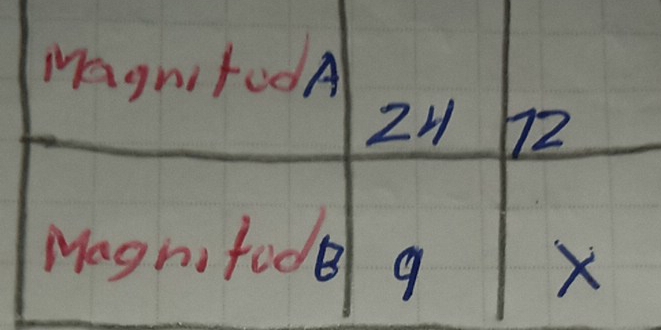 Magnitud A 24 72
Magnitud B 9 X